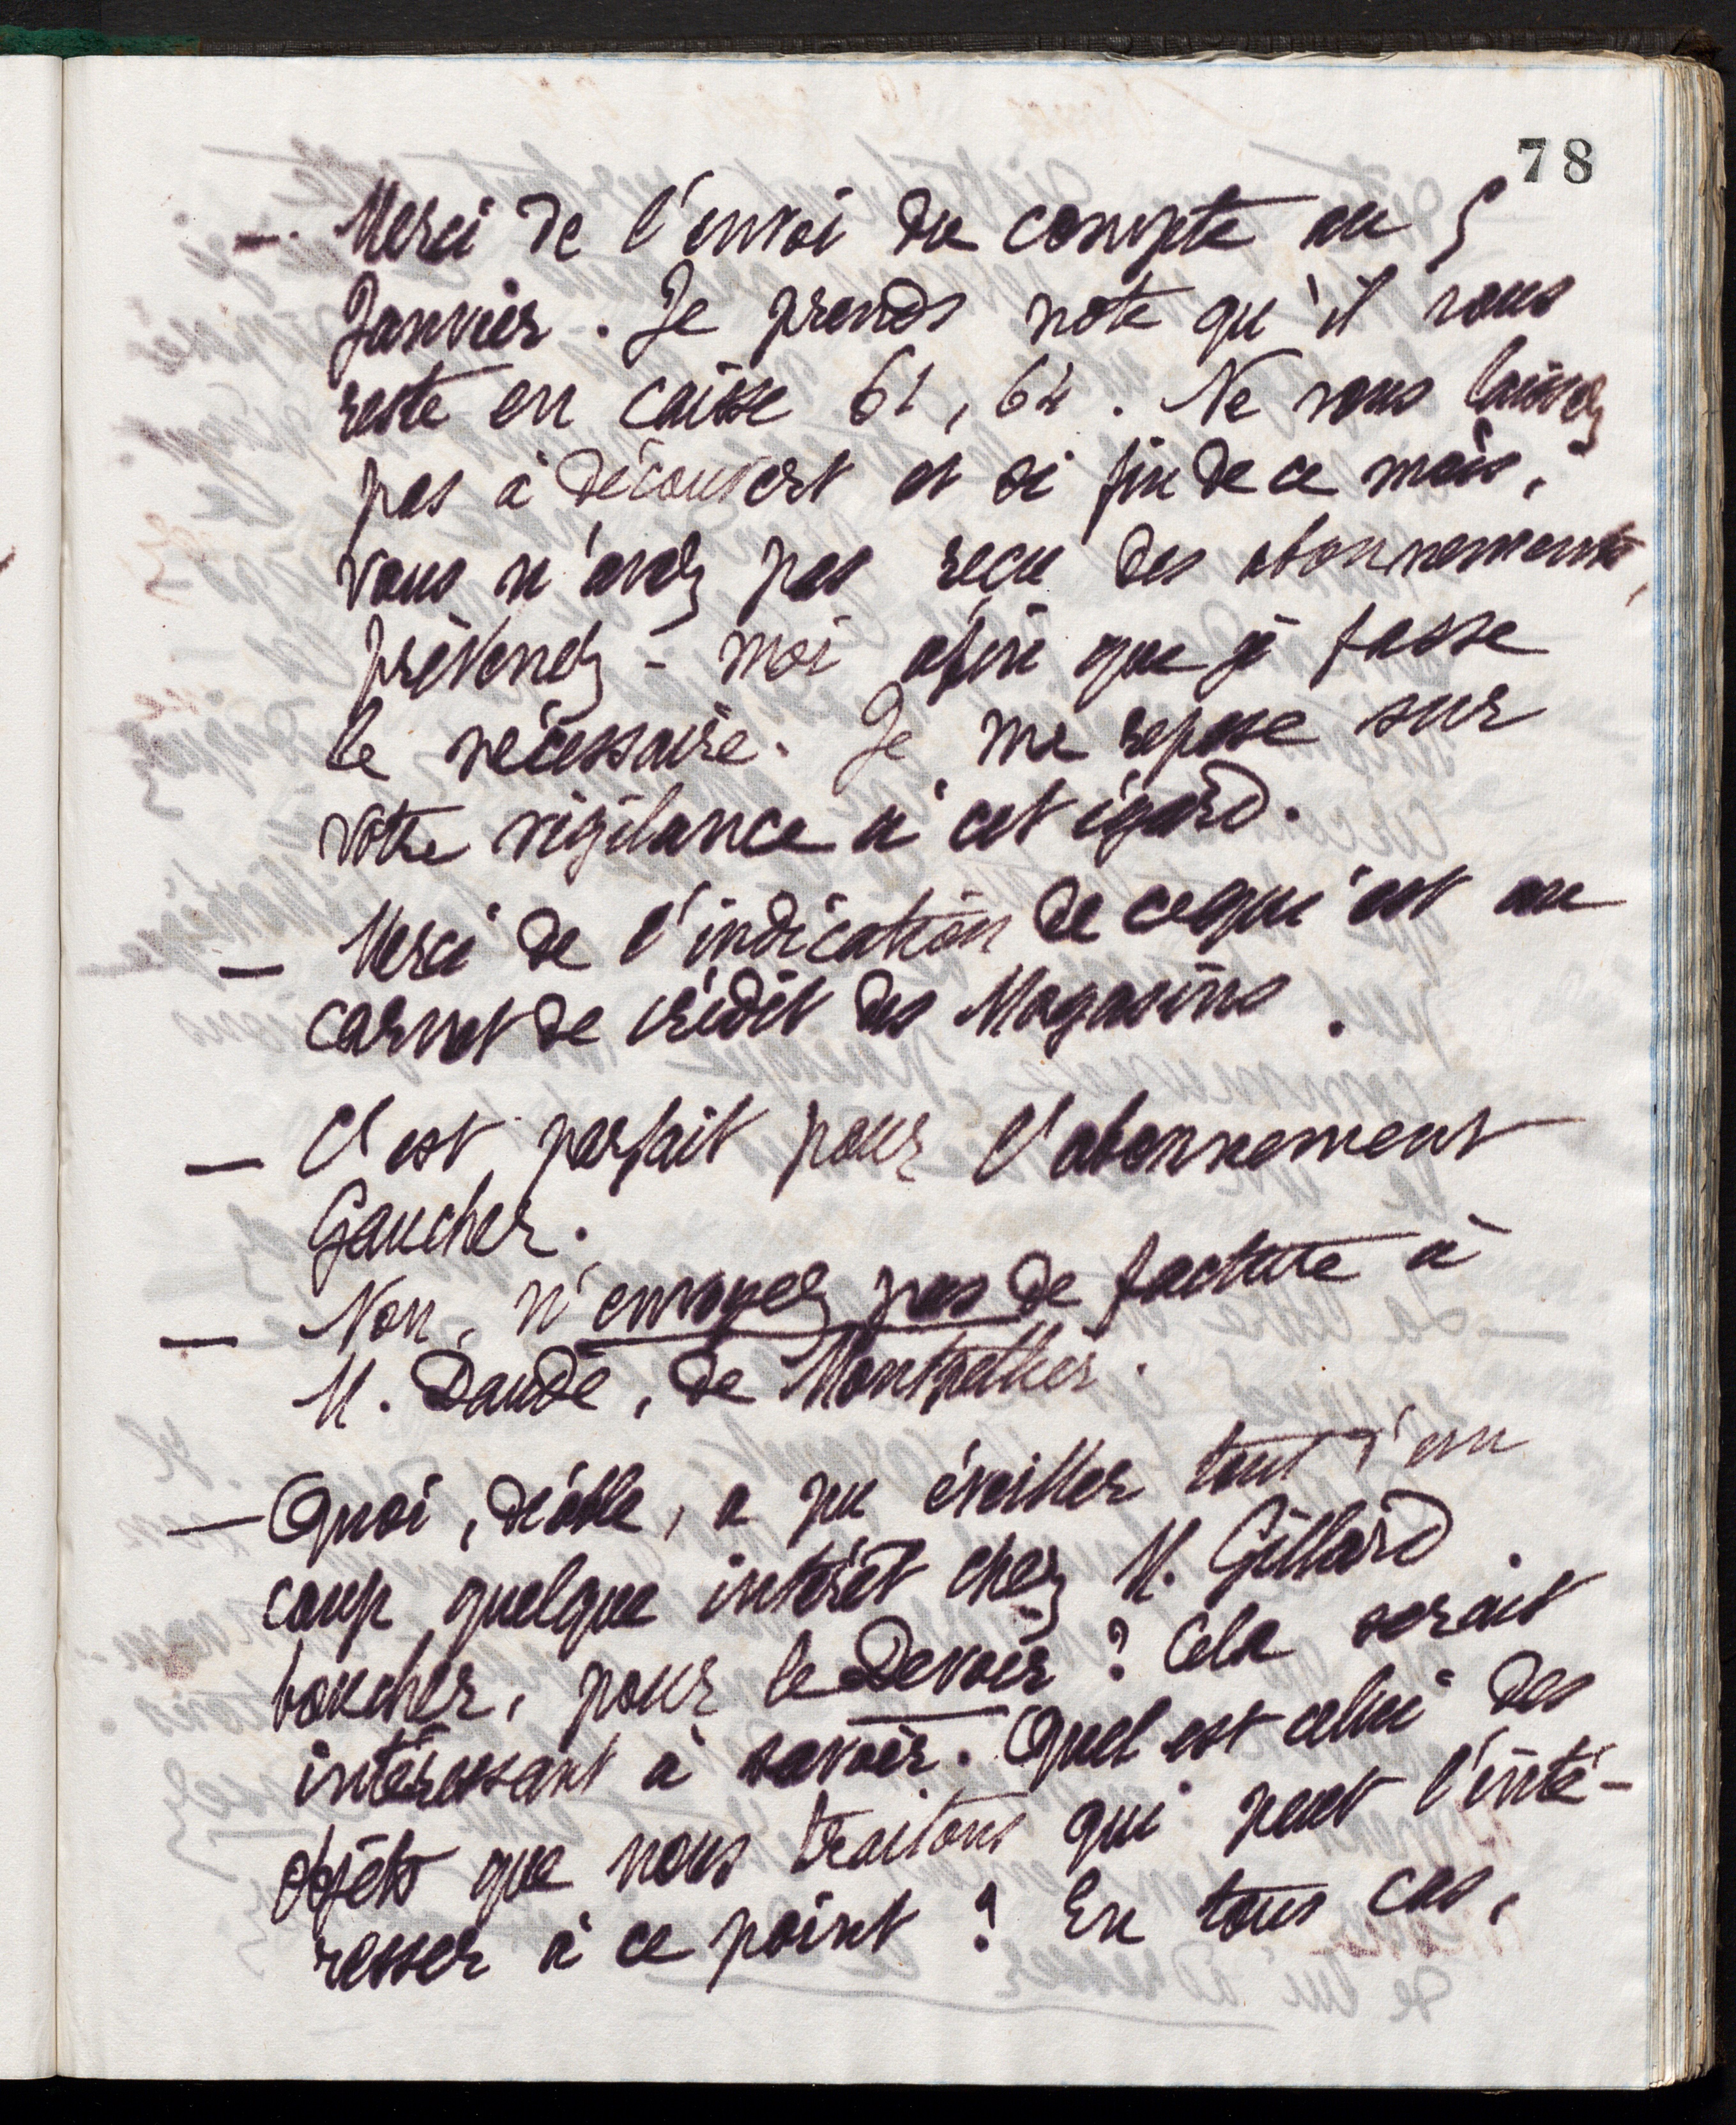 78
— Merci de l'envoi du compte au 5
Janvier. Je prends note qu'il vous
reste en caisse 61, 64. Ne vous laissez
pas à découvert et si fin de ce mois,
vous n'avez pas reçu des abonnements,
prévenez-moi afin que je fasse
le nécessaire. Je me repose sur
votre vigilance à cet égard.
— Merci de l'indication de ce qui est au
carnet de crédit des Magasins.
— C'est parfait pour l'abonnement
Gaucher.
— Non, n'envoyez pas de facture à
M. Daudé, de Montpellier.
— Quoi, diable, a pu éveiller tout d'un
coup quelque intérêt chez M. Gillard
boucher, pour le Devoir ? Cela serait
intéressant à savoir. Quel est celui des
objets que nous traitons qui peut l'inté-
resser à ce point ? En tous cas,